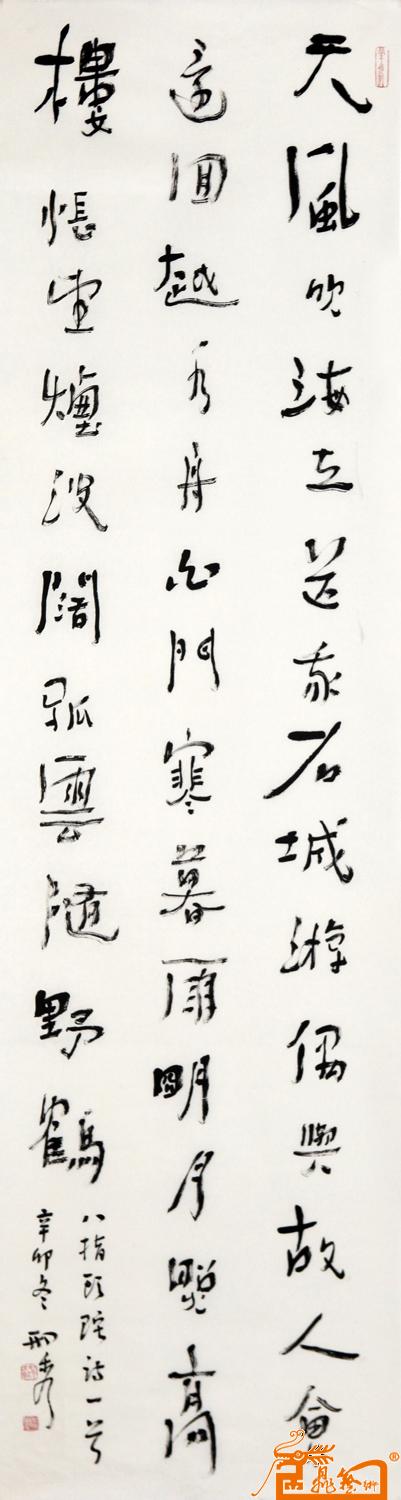 天風吹海立送我石城遊偶與故人會
適回越秀舟白門寒暮雨明月照高
樓悵望煙波闊孤雲隨野鶴
八指頭陀詩一首
辛卯冬